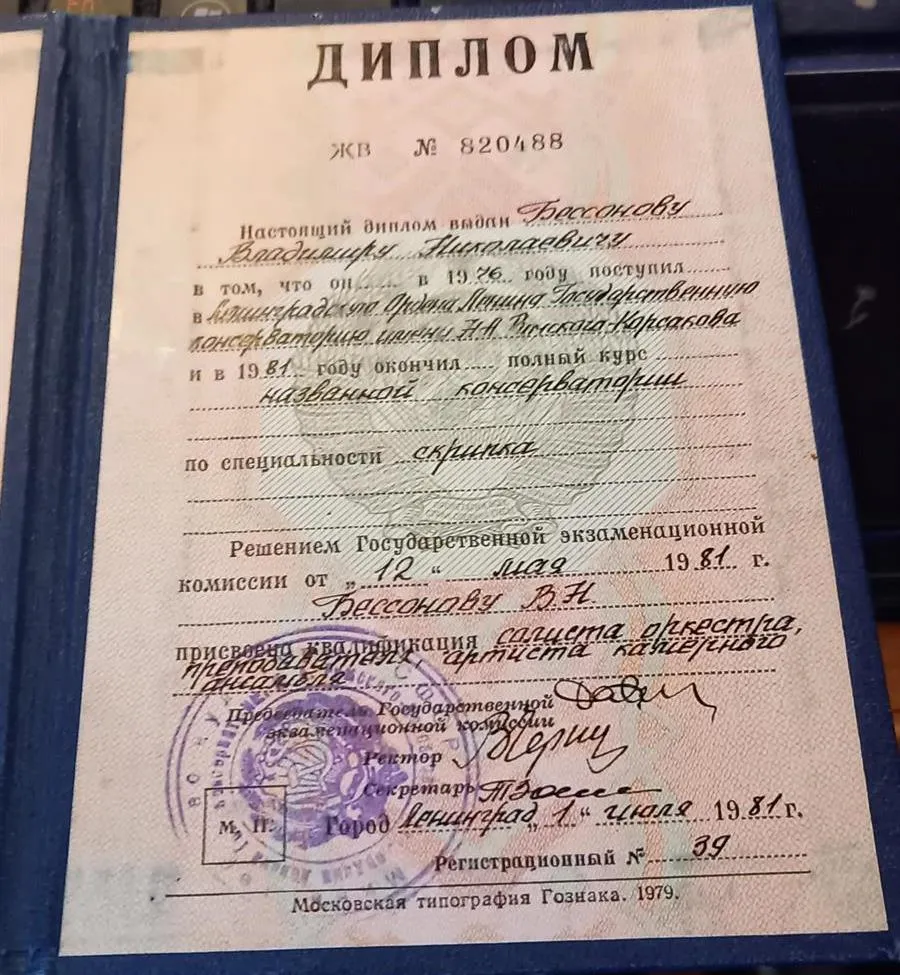 ДИПЛОМ
ЖВ № 820488
Настоящий диплом выдан Бессонову
Владимиру Николаевичу
в том, что он в 1976 году поступил
в Ленинградскую Ордена Ленина Государственную
консерваторию имени Н А Римского-Корсакова
и в 1981 году окончил полный курс
названной консерватории
по специальности скрипка
Решением Государственной экзаменационной
комиссии от „12“ мая 1981 г.
Бессонову В Н
присвоена квалификация солиста оркестра,
преподавателя, артиста камерного
ансамбля
Председатель Государственной
экзаменационной комиссии
Ректор
Секретарь
М. П. Город Ленинград „1“ июля 1981 г.
Регистрационный № 39
Московская типография Гознака. 1979.